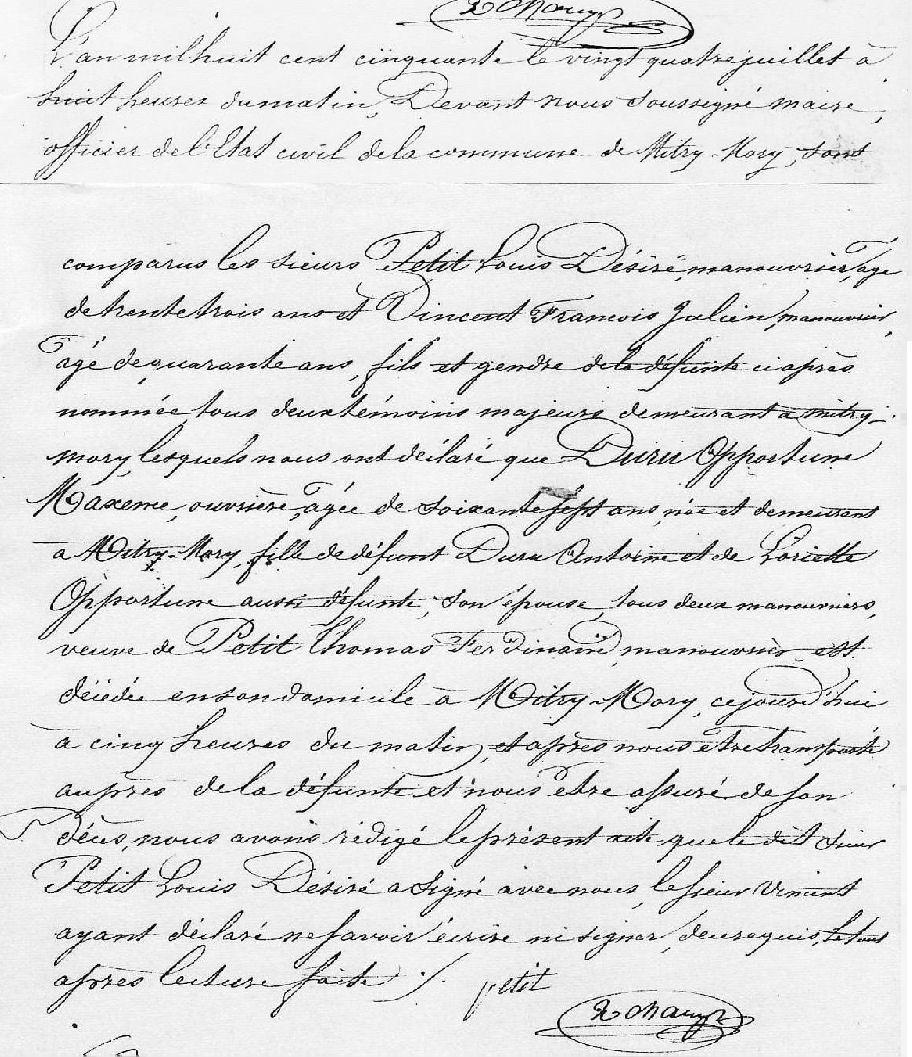 L'an mil huit cent cinquante le vingt quatre juillet à
huit heures du matin, Devant nous soussigné maire,
officier de l'Etat civil de la commune de Mitry-Mory, sont
comparus les sieurs Petit Louis Désiré, manouvrier, agé
de trente trois ans et Vincent Francois Julien, manouvrier,
agé de quarante ans, fils et gendre de la défunte ci après
nommée, tous deux témoins majeurs demeurant a mitry-
mory, lesquels nous ont déclaré que Duru Opportune
Maxence, ouvrière, agée de soixante sept ans, née et demeurant
a Mitry-Mory, fille de défunt Duru Antoine et de Loriette
Opportune aussi défunte, son épouse, tous deux manouvriers,
veuve de Petit Thomas Ferdinand, manouvrier est
décédée en son domicile à Mitry-Mory, cejourd'hui
a cinq heures du matin, et après nous être transporté
auprès de la défunte et nous être assuré de son
décès, nous avons rédigé le présent acte que le dit sieur
Petit Louis Désiré a signé avec nous, le sieur Vincent
ayant déclaré ne savoir écrire ni signer, de ce requis, le tout
après lecture faite ./. petit